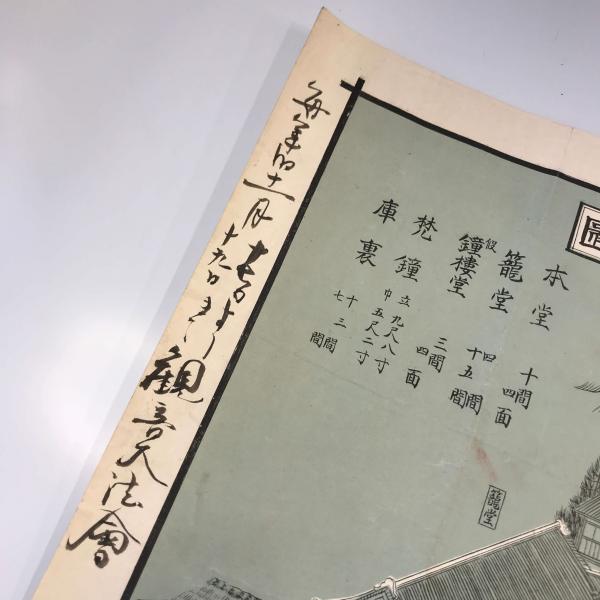 本堂 十間四面
籠堂 四間
仮鐘楼堂 十五間
三間四面
梵鐘 立九尺八寸
巾五尺二寸
庫裏 十三間
七間
籠堂
毎年旧十一月
十九日
観音大法會